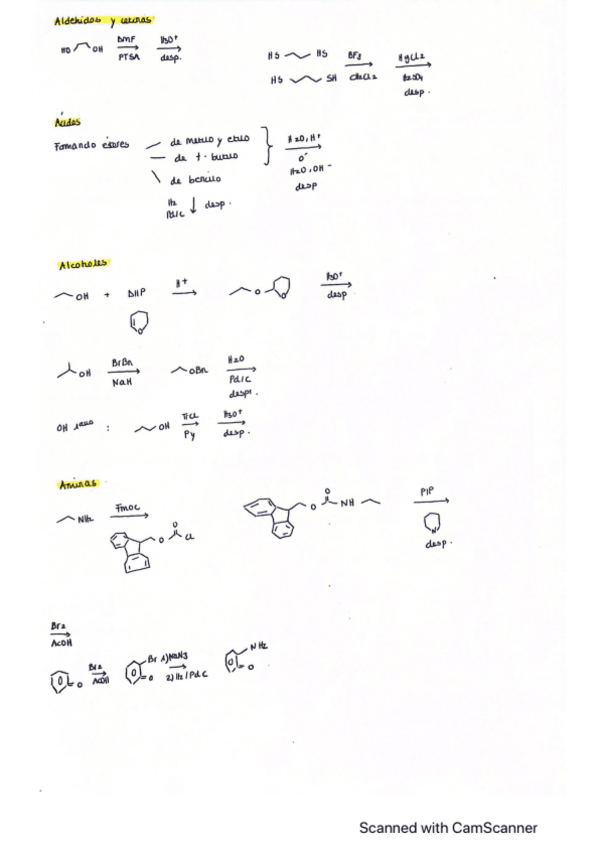 Aldehidos y cetonas
HO OH DMF PTSA H3O+ desp.
HS HS BF3 HgCl2
HS SH CH2Cl2 H2SO4
desp.
Ácidos
Formando ésteres de metilo y etilo H2O, H+
de t-butilo o
de bencilo H2O, OH-
desp
H2 Pd/C desp.
Alcoholes
OH + DHP H+ O O H3O+ desp
O
OH BrBn NaH OBn H2O Pd/C
desp.
OH : OH TrCl Py H3O+ desp.
Aminas
NH2 Fmoc O O NH PIP
O O Cl N
desp.
Br2
AcOH
O Br2 AcOH Br O 1) NaN3 2) H2/Pd.C NH2 O
Scanned with CamScanner